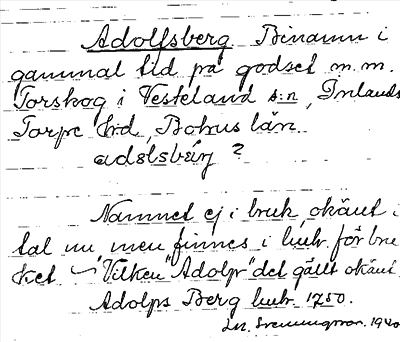 Adolfsberg Binamn i
gammal tid på godset m.m.
Torskog i Vesteland s:n, Inlands
Torpe hd, Bohus län.
adolsbärj ?
Namnet ej i bruk, okänt i
tal nu, men finnes i hub. för bru
ket "Vilken "Adolf" det gällt okänt
Adolps Berg hub. 1750.
Jn. Svenungsson. 1940